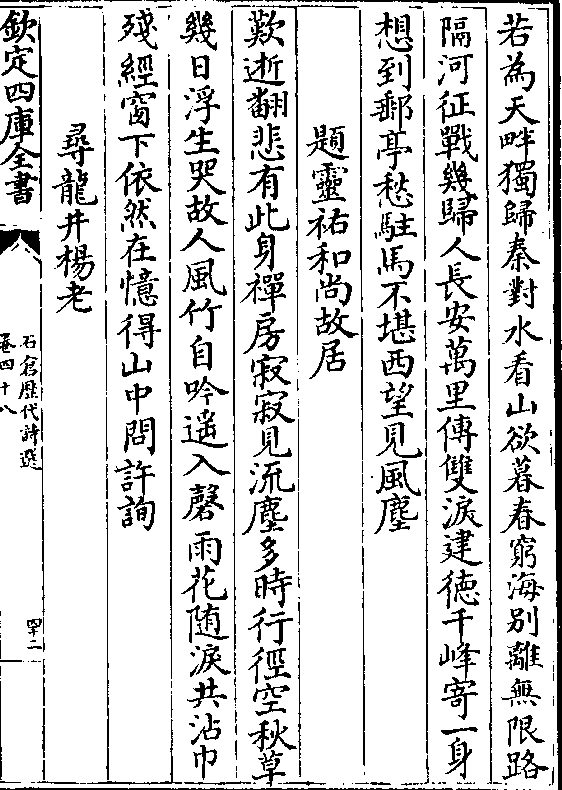 若為天畔獨歸秦對水看山欲暮春窮海别離無限路
隔河征戰幾歸人長安萬里傳雙淚建徳千峰寄一身
想到郵亭愁駐馬不堪西望見風塵
題靈祐和尚故居
歎逝翻悲有此身禪房寂寂見流塵多時行徑空秋草
幾日浮生哭故人風竹自吟遥入磬雨花随淚共沾巾
殘經窗下依然在憶得山中問許詢
尋龍井楊老
欽定四庫全書
石倉歴代詩選
卷四十八
四十二